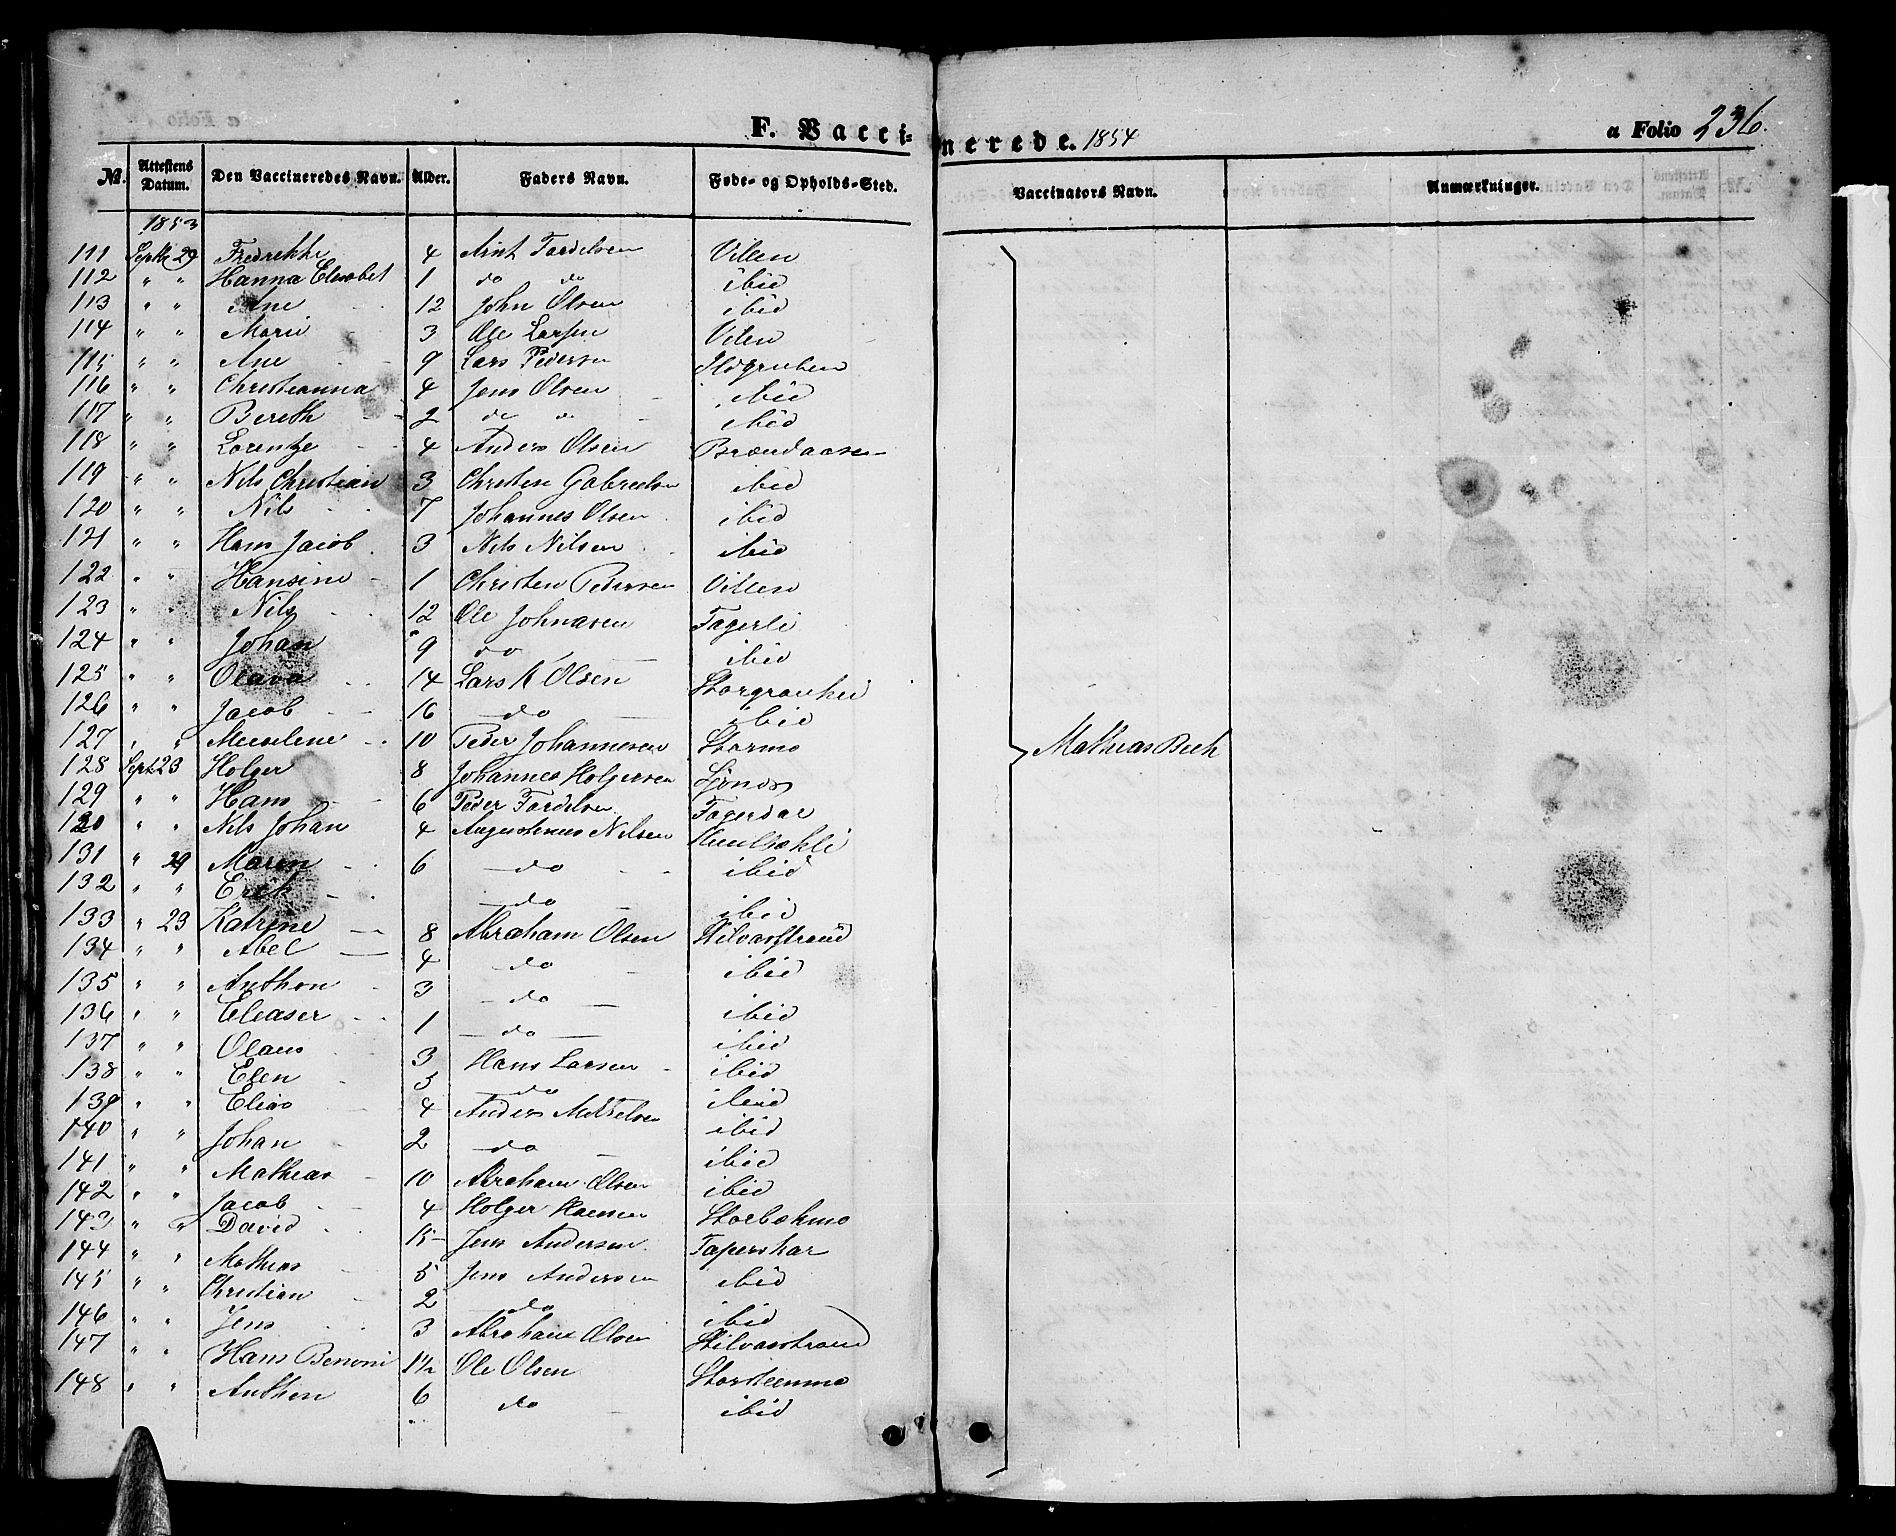 F. Vaccinerede. 1854 a Folio 236.
No. Attestens Datum. Den Vaccineredes Navn. Alder. Faders Navn. Føde- og Opholds-Sted. Vaccinators Navn. Anmærkninger.
1853
111 Septb 29 Fredrekke 4 Arnt Tordelsen Villen
112 " " Hanna Elisabet 1 do do ibid
113 " " Ane 12 John Olsen ibid
114 " " Marie 3 Ole Larsen Vilen
115 " " Ane 9 Lars Pedersen Ildgruben
116 " " Christianna 4 Jens Olsen ibid
117 " " Bereth 2 do do ibid
118 " " Lorentze 4 Anders Olsen Brændaasen
119 " " Nils Christian 3 Christen Gabrielsen ibid
120 " " Nils 7 Johannes Olsen ibid
121 " " Hans Jacob 3 Nils Nilsen ibid
122 " " Hansine 1 Christen Petersen Villen
123 " " Nils 12 Ole Johnasen Fagerli
124 " " Johan 9 do ibid
125 " " Olava 14 Lars K Olsen
126 " " Jacob 16 do ibid
127 " " 10 Peder Johannesen Stormo
128 Sept 23 Holger 8 Johannes Holgersen Sjonds
129 " " Hans 6 Peder Tordelsen Fagerdal
130 " " Nils Johan 4 Augustinus Nilsen
131 " 29 Maren 6 do ibid
132 " " Erik do ibid
133 " 23 Katrine 8 Abraham Olsen Stilvasstrand
134 " " Abel 4 do ibid
135 " " Anthon 3 do ibid
136 " " Eleaser 1 do ibid
137 " " Olaus 3 Hans Larsen ibid
138 " " Elen 5 do ibid
139 " " Elias 4 Anders Mikkelsen ibid
140 " " Johan 2 do ibid
141 " " Mathias 10 Abraham Olsen ibid
142 " " Jacob 4 Holger Hansen Storbækmo
143 " " David 15 Jens Andersen Taperskar
144 " " Mathias 5 Jens Andersen ibid
145 " " Christian 2 do ibid
146 " " Jens 3 Abraham Olsen Stilvasstrand
147 " " Hans Benoni 1½ Ole Olsen Storsteenmo
148 " " Anthon 6 do ibid
Mathias Bech